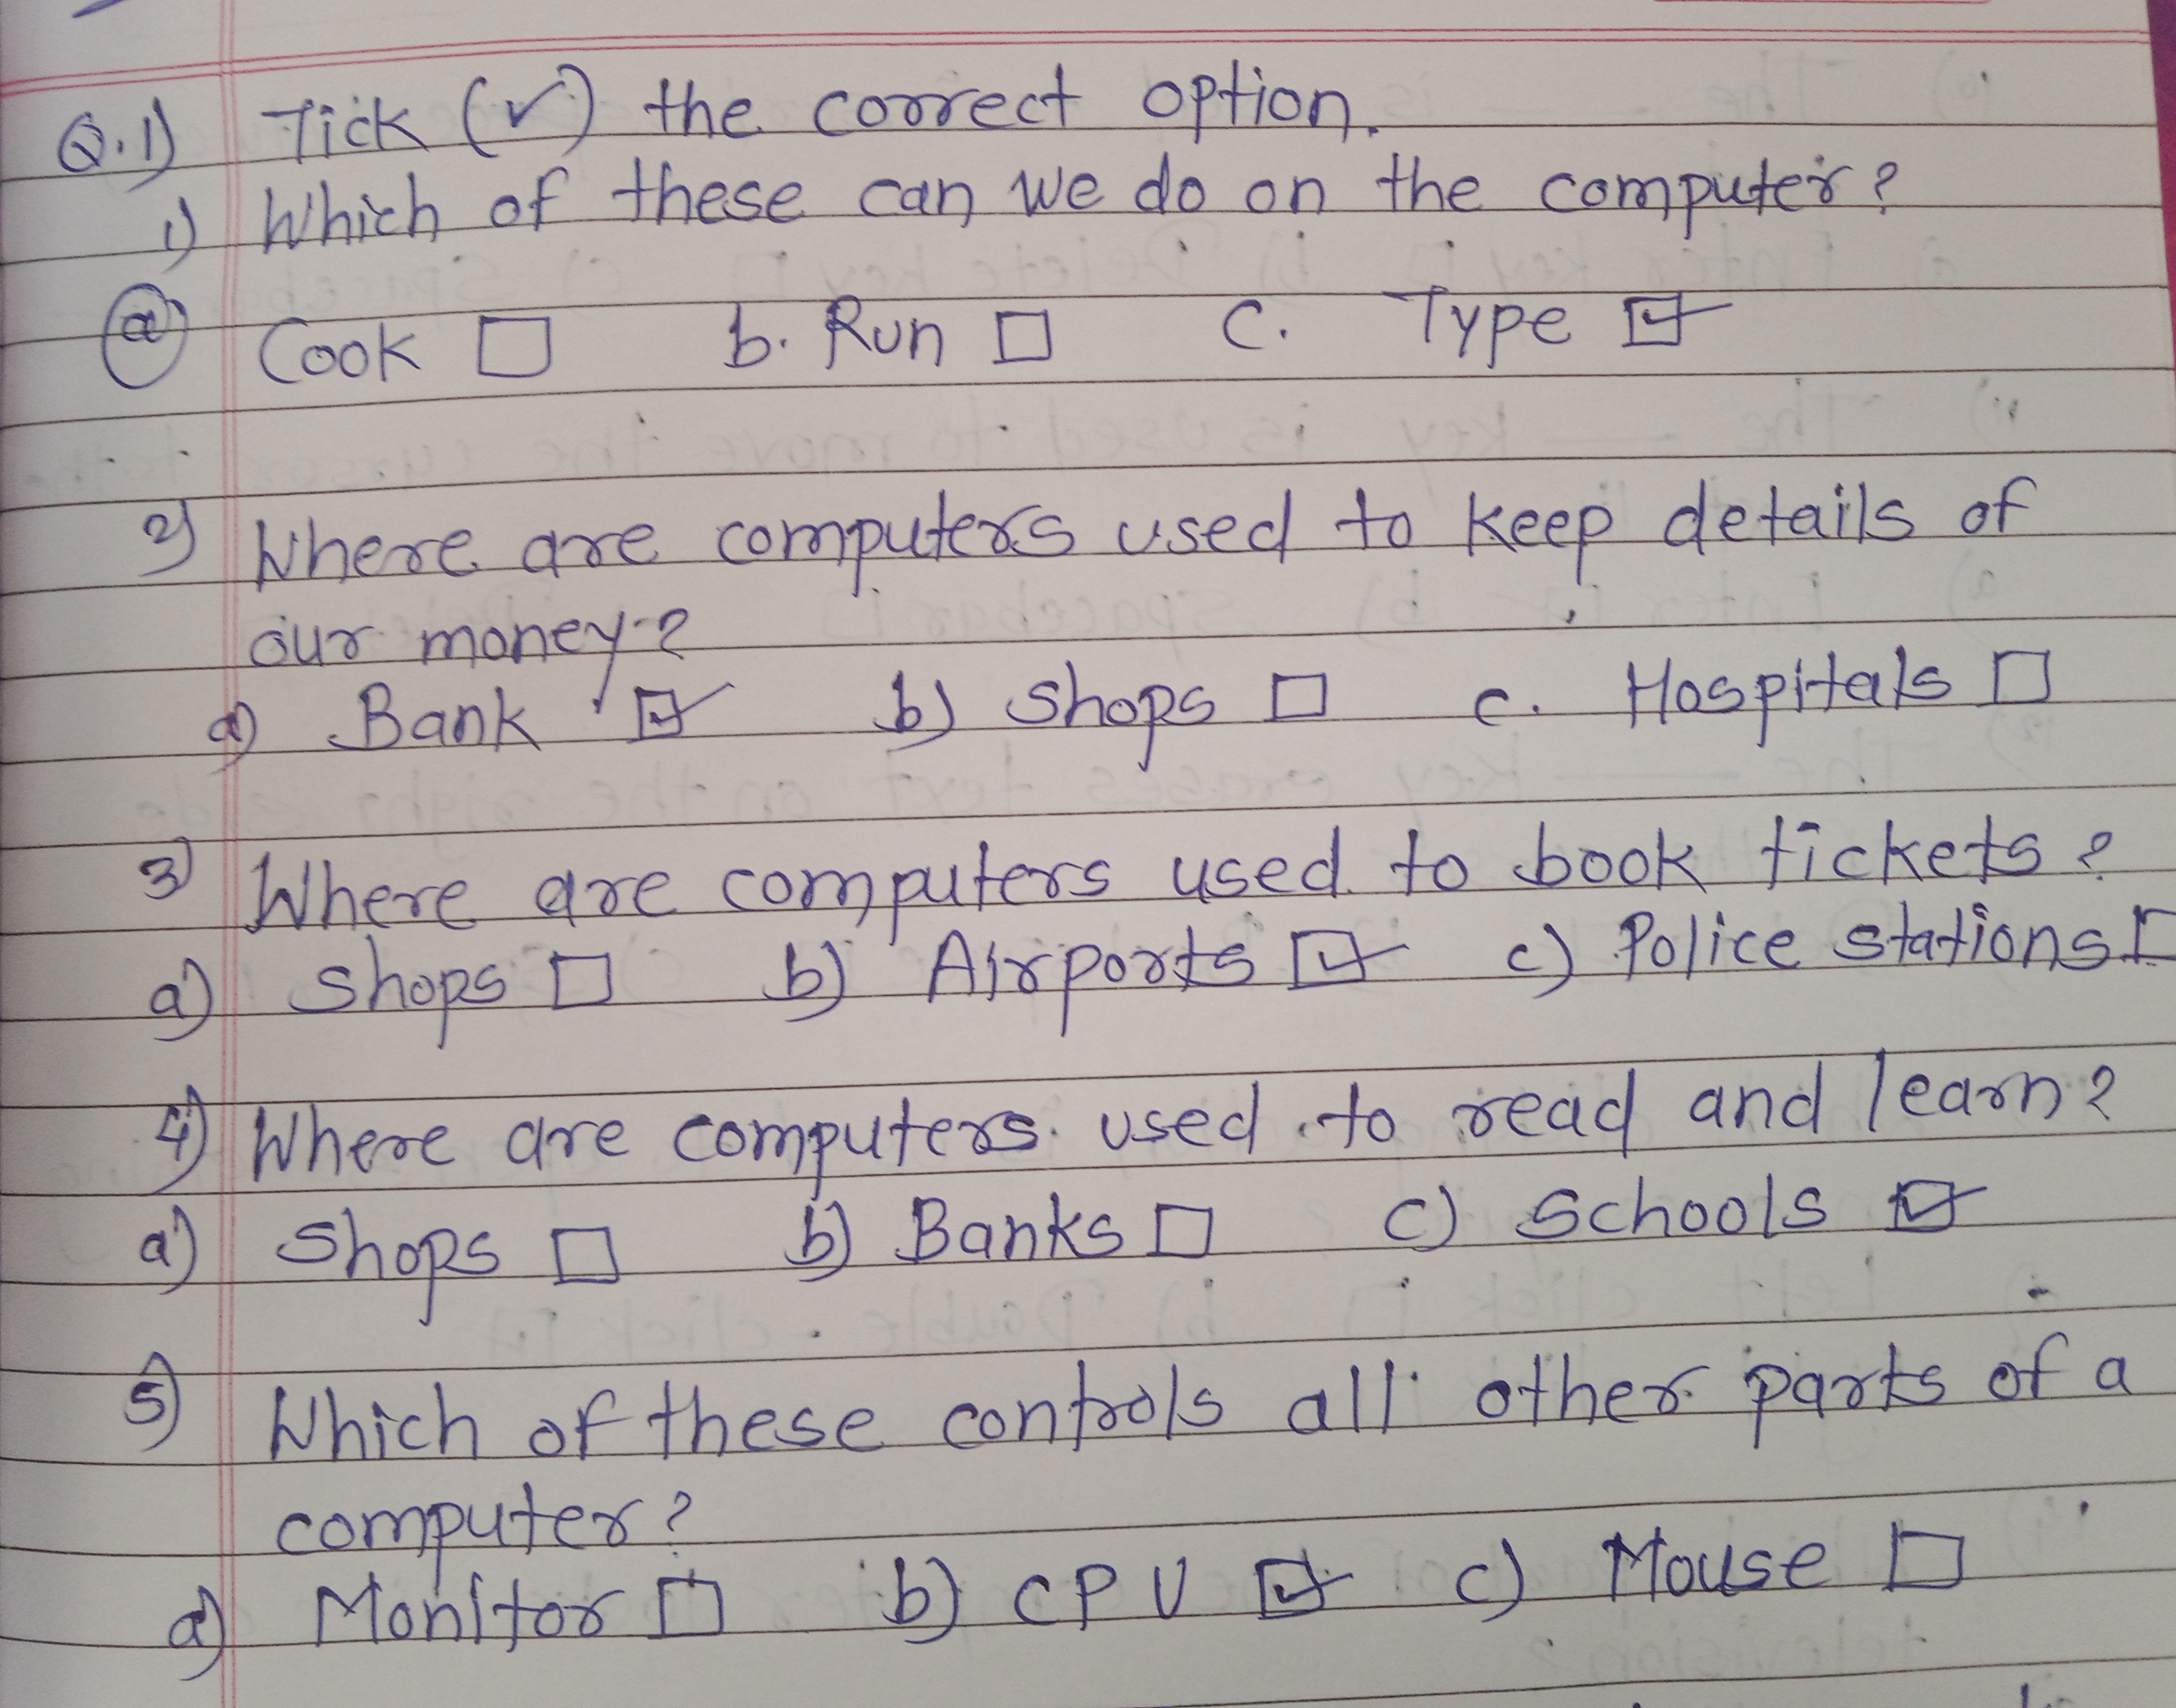 Q.1) Tick (✓) the correct option.
1) Which of these can we do on the computer?
a) Cook ☐ b. Run ☐ C. Type ☑
2) Where are computers used to keep details of
our money?
a) Bank ☑ b) Shops ☐ c. Hospitals ☐
3) Where are computers used to book tickets?
a) Shops ☐ b) Airports ☑ c) Police stations ☐
4) Where are computers used to read and learn?
a) Shops ☐ b) Banks ☐ c) Schools ☑
5) Which of these controls all other parts of a
computer?
a) Monitor ☐ b) CPU ☑ c) Mouse ☐